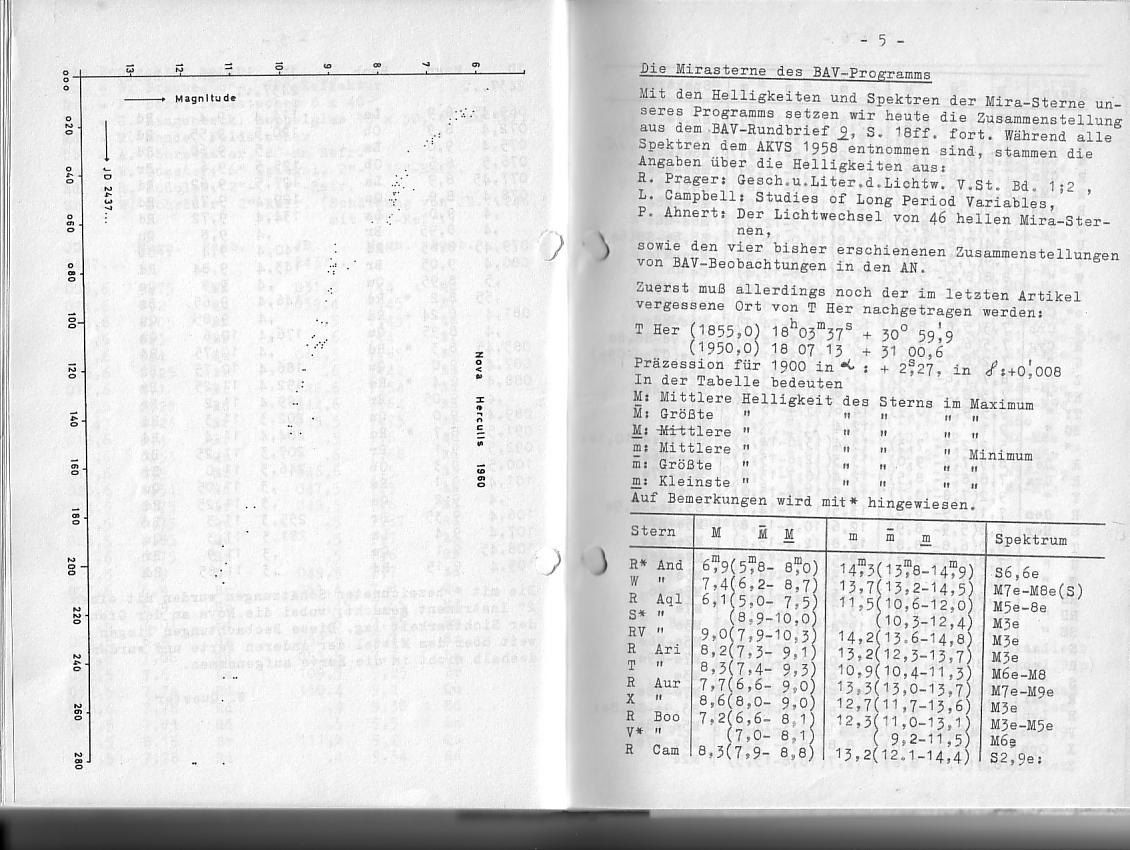 13 12 11 10 9 8 7 6
Magnitude
JD 2437...
000 020 040 060 080 100 120 140 160 180 200 220 240 260 280
Nova Herculis 1960
- 5 -
Die Mirasterne des BAV-Programms
Mit den Helligkeiten und Spektren der Mira-Sterne un-
seres Programms setzen wir heute die Zusammenstellung
aus dem BAV-Rundbrief 9, S. 18ff. fort. Während alle
Spektren dem AKVS 1958 entnommen sind, stammen die
Angaben über die Helligkeiten aus:
R. Prager: Gesch.u.Liter.d.Lichtw. V.St. Bd. 1;2 ,
L. Campbell: Studies of Long Period Variables,
P. Ahnert: Der Lichtwechsel von 46 hellen Mira-Ster-
nen,
sowie den vier bisher erschienenen Zusammenstellungen
von BAV-Beobachtungen in den AN.
Zuerst muß allerdings noch der im letzten Artikel
vergessene Ort von T Her nachgetragen werden:
T Her (1855,0) 18h03m37s + 30° 59,'9
(1950,0) 18 07 13 + 31 00,6
Präzession für 1900 in α : + 2,s27, in δ:+0,'008
In der Tabelle bedeuten
M: Mittlere Helligkeit des Sterns im Maximum
M̄: Größte " " " " "
M̲: Mittlere " " " " "
m: Mittlere " " " " Minimum
m̄: Größte " " " " "
m̲: Kleinste " " " " "
Auf Bemerkungen wird mit* hingewiesen.
Stern M M̄ M̲ m m̄ m̲ Spektrum
R* And 6,m9(5,m8- 8,m0) 14,m3(13,m8-14,m9) S6,6e
W " 7,4(6,2- 8,7) 13,7(13,2-14,5) M7e-M8e(S)
R Aql 6,1(5,0- 7,5) 11,5(10,6-12,0) M5e-8e
S* " (8,9-10,0) (10,3-12,4) M3e
RV " 9,0(7,9-10,3) 14,2(13.6-14,8) M3e
R Ari 8,2(7,3- 9,1) 13,2(12,3-13,7) M3e
T " 8,3(7,4- 9,3) 10,9(10,4-11,3) M6e-M8
R Aur 7,7(6,6- 9,0) 13,3(13,0-13,7) M7e-M9e
X " 8,6(8,0- 9,0) 12,7(11,7-13,6) M3e
R Boo 7,2(6,6- 8,1) 12,3(11,0-13,1) M3e-M5e
V* " (7,0- 8,1) ( 9,2-11,5) M6e
R Cam 8,3(7,9- 8,8) 13,2(12.1-14,4) S2,9e: